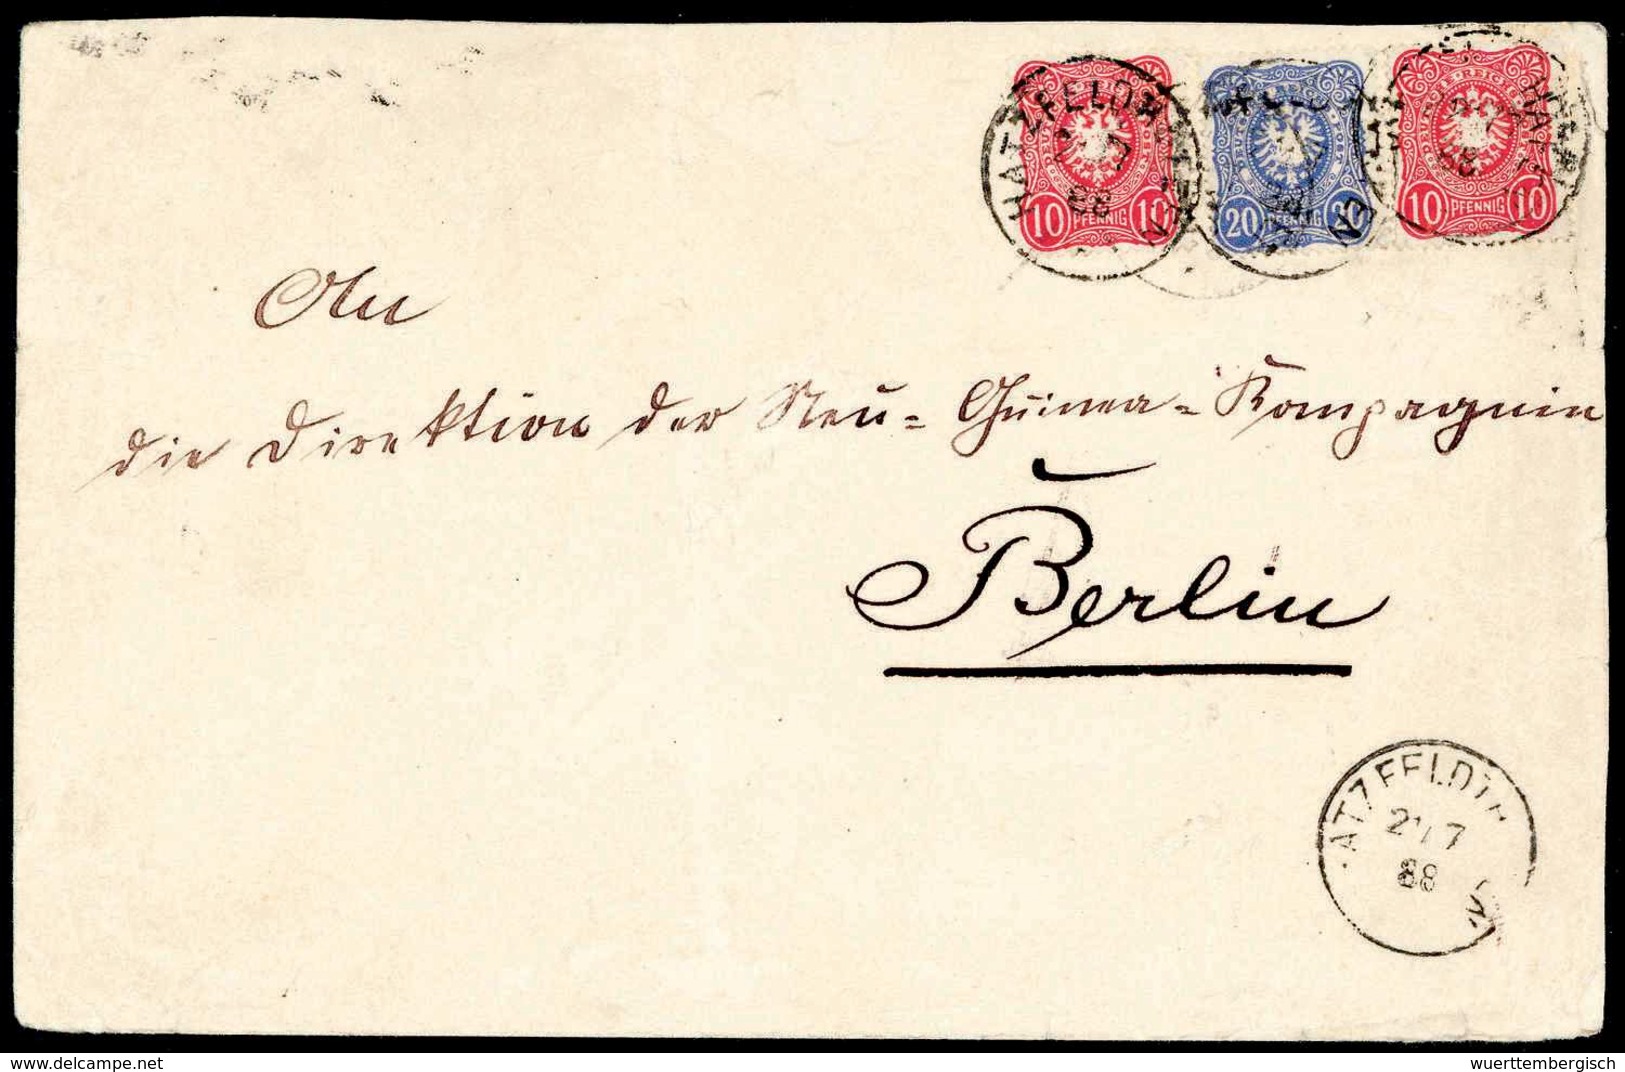 HATZFELDTHAFEN
88
10 PFENNIG 10
20 PFENNIG 20
10 PFENNIG 10
88
An
die Direktion der Neu-Guinea-Kompagnie
Berlin
ATZFELDTH
21/7
88
delcampe.net
wuerttembergisch